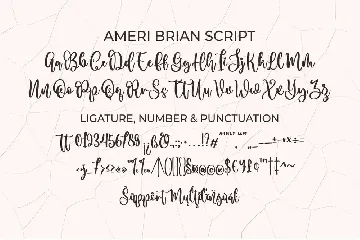 AMERI BRIAN SCRIPT
Aa Bb Cc Dd Ee Ff Gg Hh Ii Jj Kk Ll Mm
Nn Oo Pp Qq Rr Ss Tt Uu Vv Ww Xx Yy Zz
LIGATURE, NUMBER & PUNCTUATION
tt 0123456789
Support Multilingual